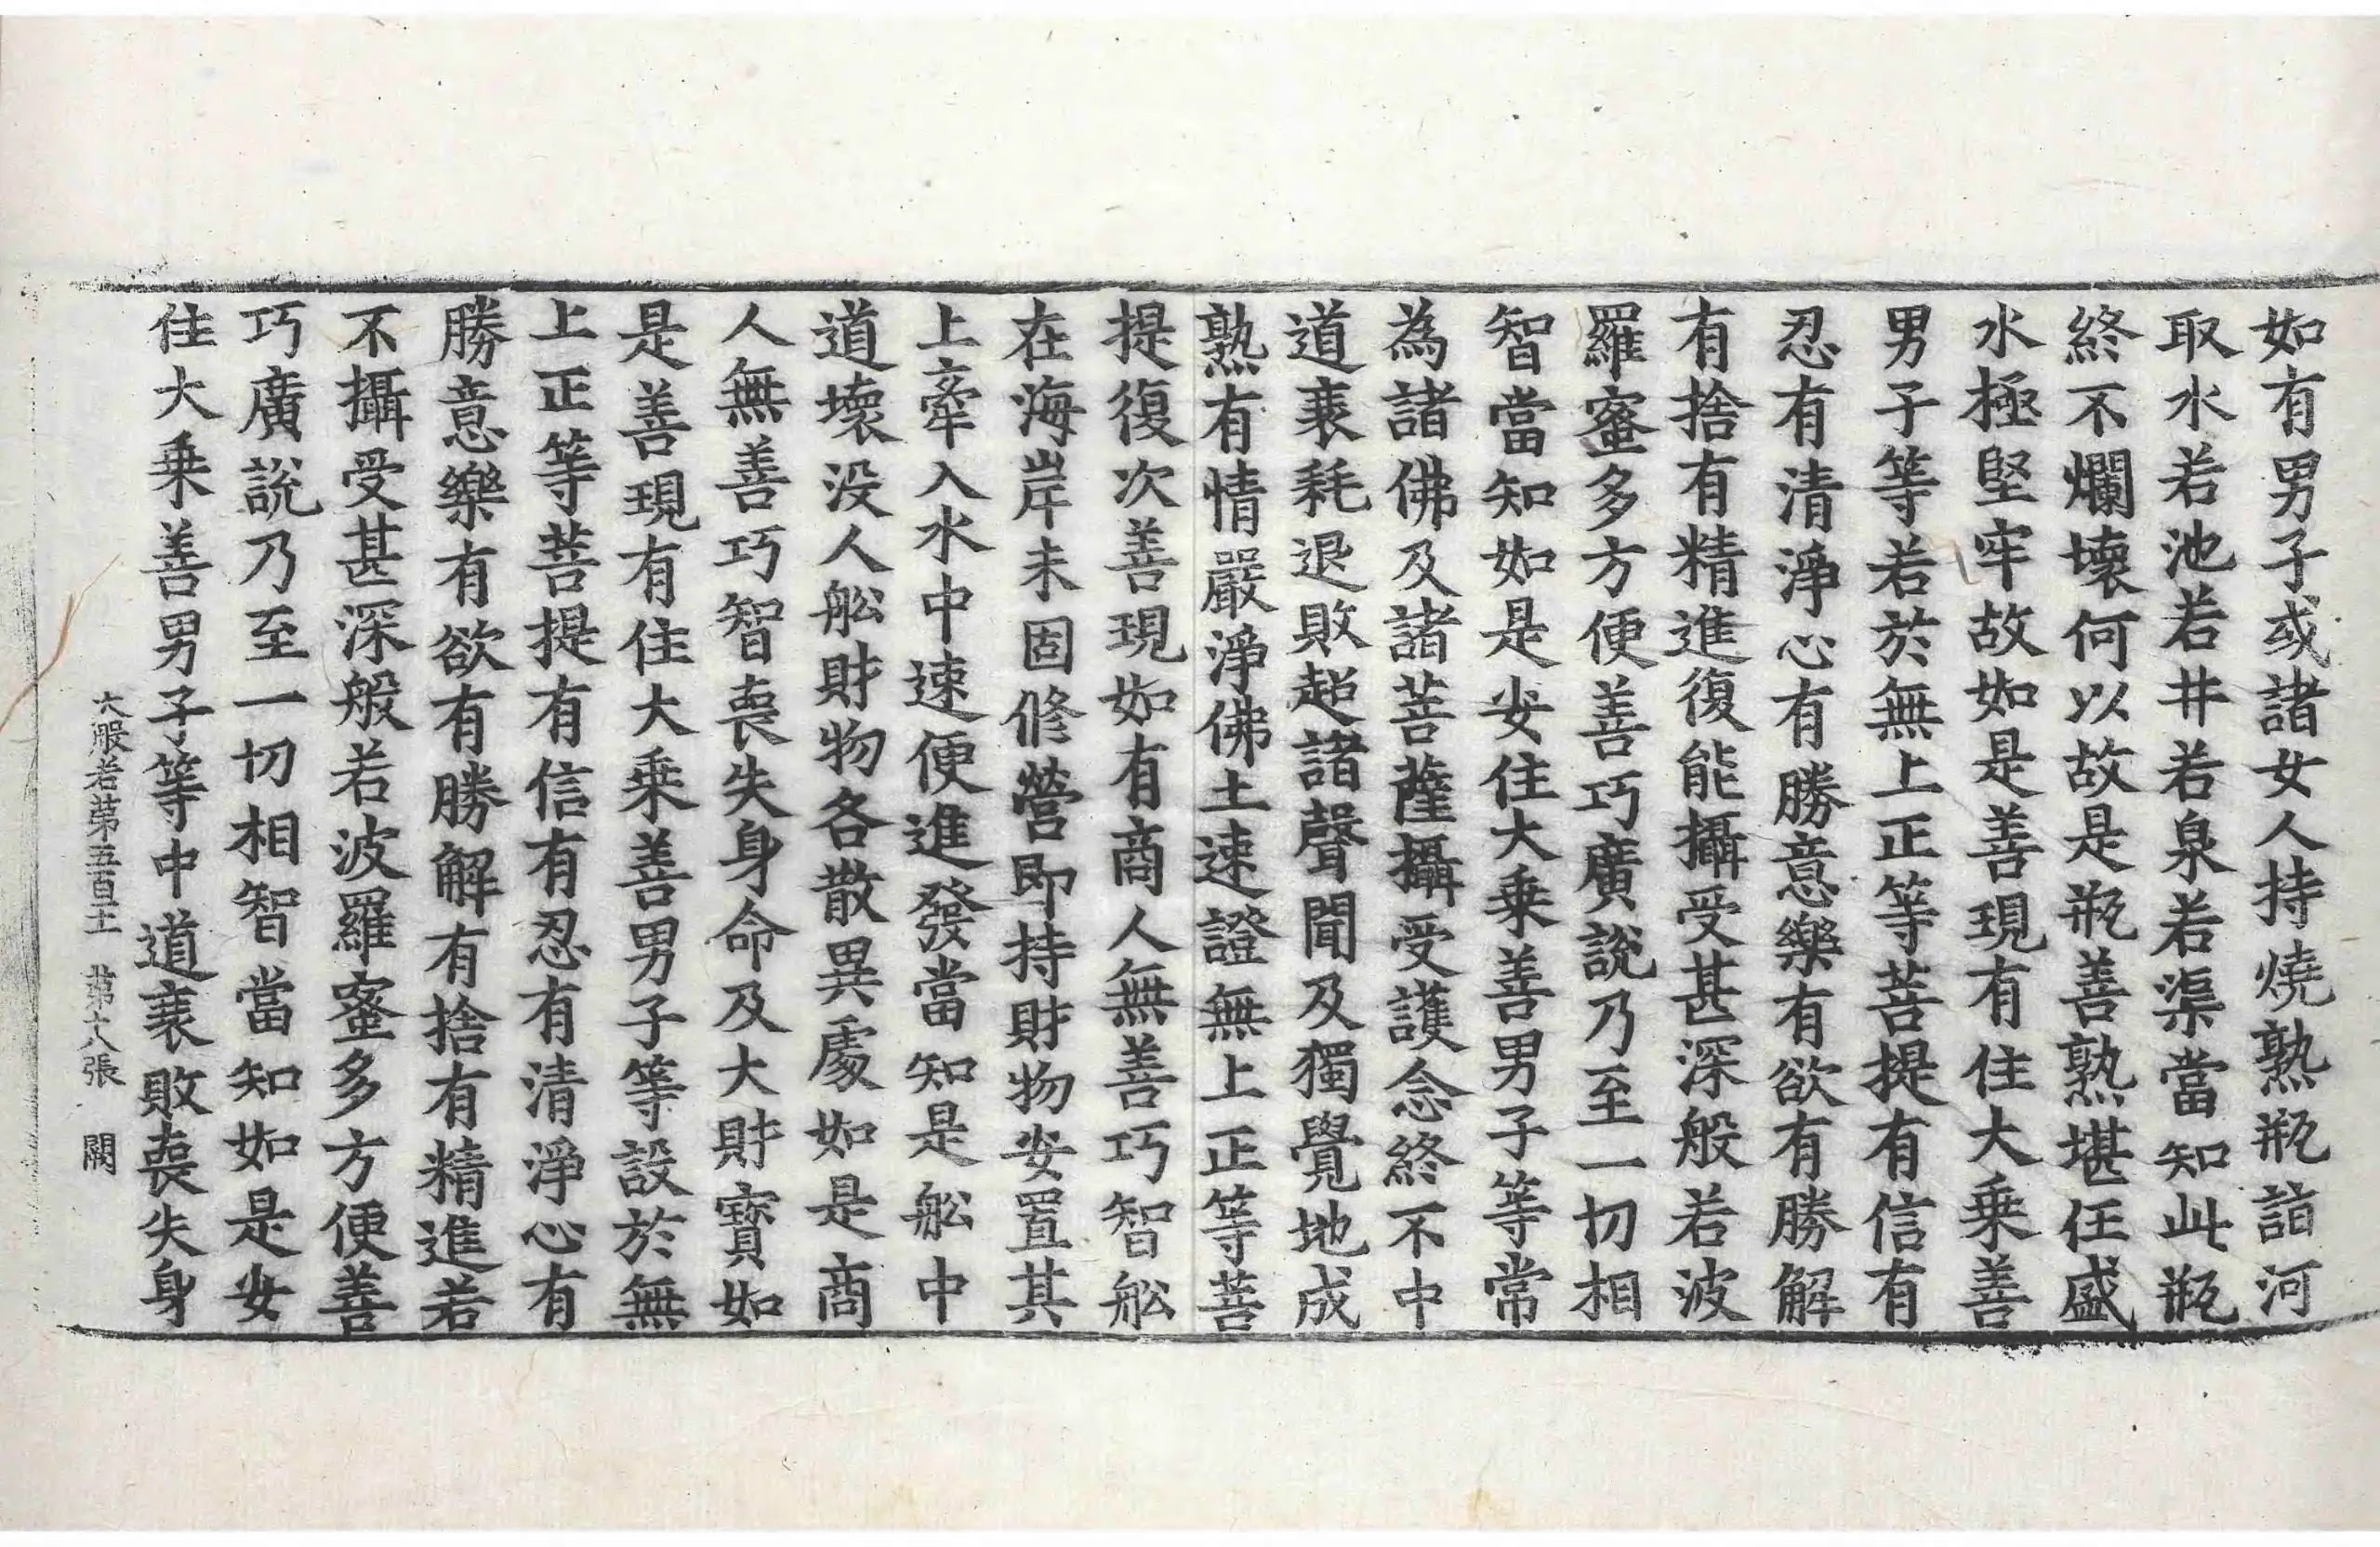 如有男子或諸女人持燒熟瓶詣河
取水若池若井若泉若渠當知此瓶
終不爛壞何以故是瓶善熟堪任盛
水極堅牢故如是善現有住大乗善
男子等若於無上正等菩提有信有
忍有清淨心有勝意樂有欲有勝解
有捨有精進復能攝受甚深般若波
羅蜜多方便善巧廣說乃至一切相
智當知如是安住大乗善男子等常
為諸佛及諸菩薩攝受護念終不中
道衰耗退敗超諸聲聞及獨覺地成
熟有情嚴淨佛土速證無上正等菩
提復次善現如有商人無善巧智舩
在海岸未固修營即持財物安置其
上牽入水中速便進發當知是舩中
道壞沒人舩財物各散異處如是商
人無善巧智喪失身命及大財寶如
是善現有住大乗善男子等設於無
上正等菩提有信有忍有清淨心有
勝意樂有欲有勝解有捨有精進若
不攝受甚深般若波羅蜜多方便善
巧廣說乃至一切相智當知如是安
住大乗善男子等中道衰敗喪失身
大般若第五百十一 第十八張 闕